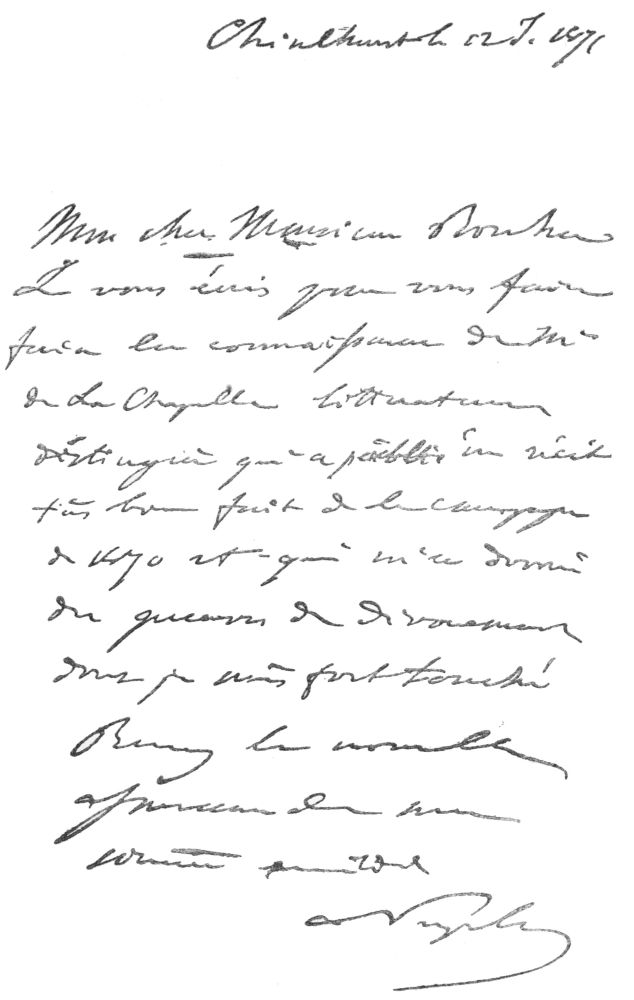 Chislehurst le 12 J. 1871
Mon cher Monsieur Rouher
Je vous écris pour vous faire
faire la connaissance de Mr
de La Chapelle littérateur
distingué qui a publié un récit
très bien fait de la campagne
de 1870 et qui m'a donné
des preuves de dévouement
dont je suis fort touché
Recevez la nouvelle
assurance de mon
sincère amitié
Napoléon